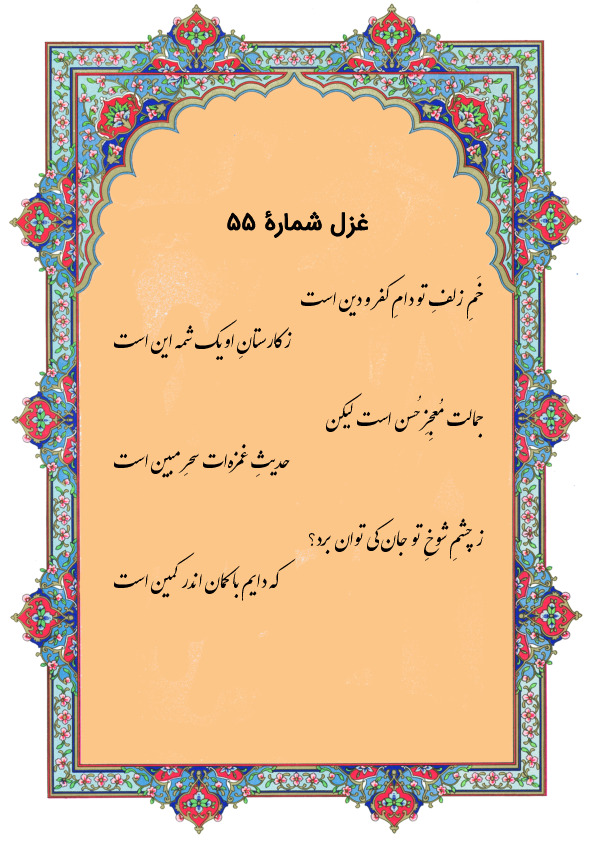 غزل شمارهٔ ۵۵
خَمِ زلفِ تو دامِ کفر و دین است
ز کارستانِ او یک شمه این است
جمالت مُعجِزِ حُسن است لیکن
حدیثِ غمزه‌ات سحرِ مبین است
ز چشمِ شوخِ تو جان کی توان برد؟
که دایم با کمان اندر کمین است